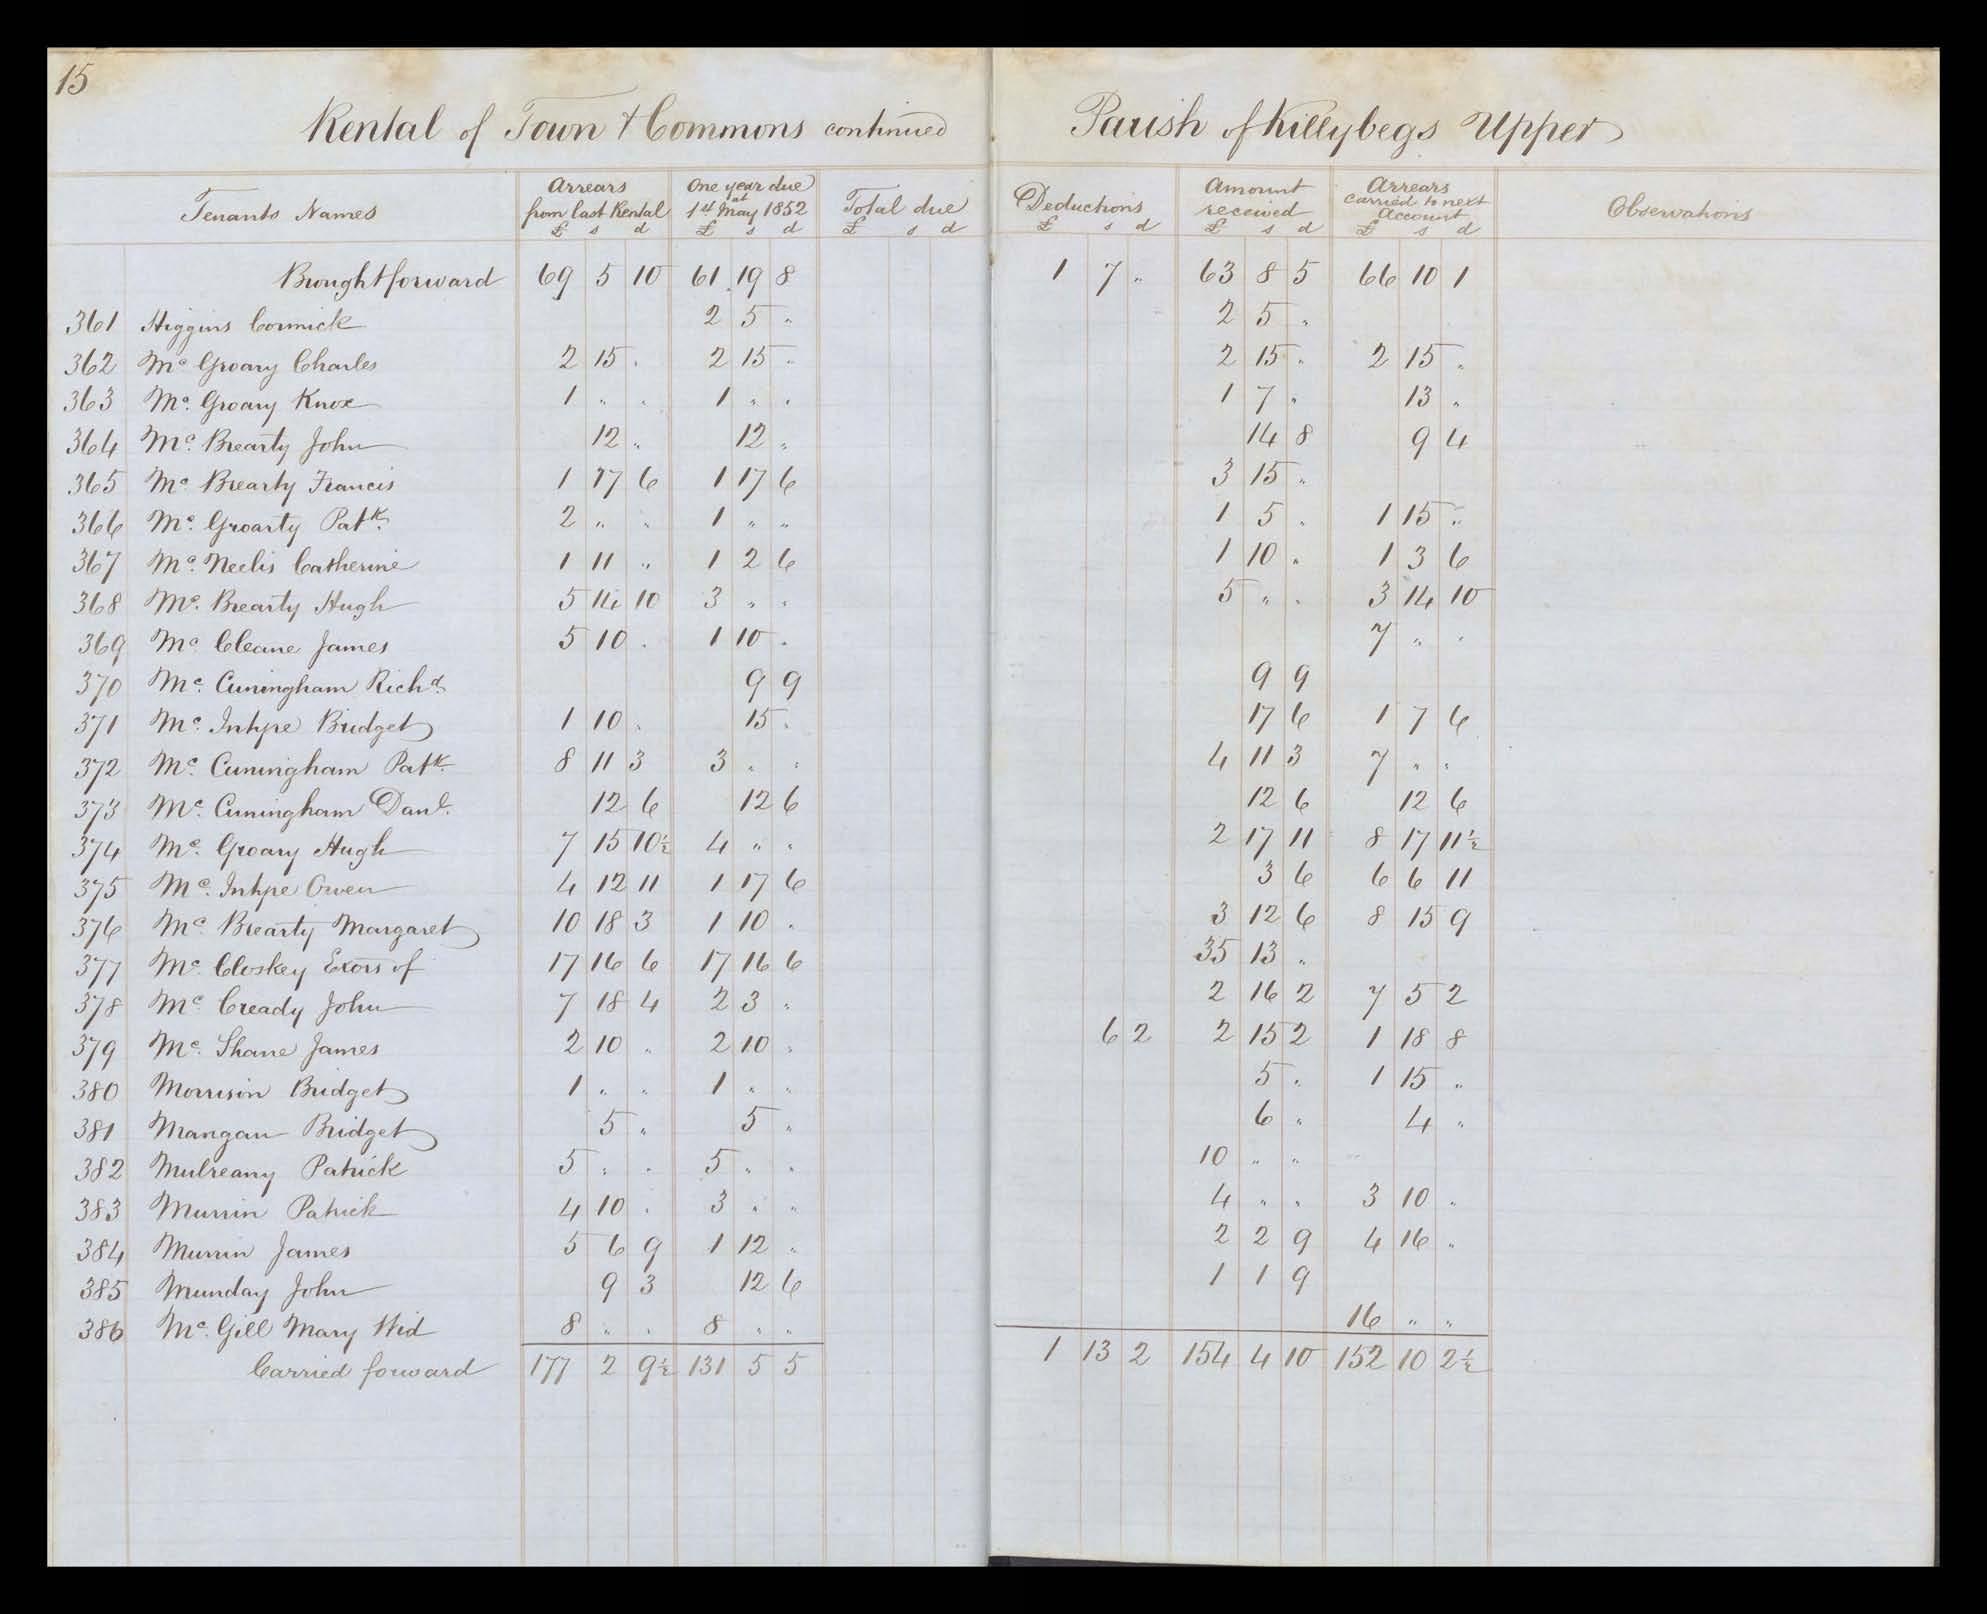 15
Rental of Town & Commons continued Parish of Killybegs Upper
Tenants Names Arrears from last Rental £ s d One year due at 1st May 1852 £ s d Total due £ s d Deductions £ s d Amount received £ s d Arrears carried to next Account £ s d Observations
Brought forward 69 5 10 61 19 8 1 7 " 63 8 5 66 10 1
361 Higgins Cormick 2 5 " 2 5 "
362 Mc Groary Charles 2 15 " 2 15 " 2 15 " 2 15 "
363 Mc. Groary Knox 1 " " 1 " " 1 7 " 13 "
364 Mc. Brearty John 12 " 12 " 14 8 9 4
365 Mc. Brearty Francis 1 17 6 1 17 6 3 15 "
366 Mc. Groarty Patk. 2 " " 1 " " 1 5 " 1 15 "
367 Mc. Neelis Catherine 1 11 " 1 2 6 1 10 " 1 3 6
368 Mc. Brearty Hugh 5 14 10 3 " " 5 " " 3 14 10
369 Mc. Cleane James 5 10 " 1 10 " 7 " "
370 Mc. Cuningham Richd. 9 9 9 9
371 Mc. Intyre Bridget 1 10 " 15 " 17 6 1 7 6
372 Mc. Cuningham Patk. 8 11 3 3 " " 4 11 3 7 " "
373 Mc. Cuningham Danl. 12 6 12 6 12 6 12 6
374 Mc. Groary Hugh 7 15 10½ 4 " " 2 17 11 8 17 11½
375 Mc. Intyre Owen 4 12 11 1 17 6 3 6 6 6 11
376 Mc. Brearty Margaret 10 18 3 1 10 " 3 12 6 8 15 9
377 Mc. Closkey Exors of 17 16 6 17 16 6 35 13 "
378 Mc. Cready John 7 18 4 2 3 " 2 16 2 7 5 2
379 Mc. Shane James 2 10 " 2 10 " 6 2 2 15 2 1 18 8
380 Morrison Bridget 1 " " 1 " " 5 " 1 15 "
381 Mangan Bridget 5 " 5 " 6 " 4 "
382 Mulreany Patrick 5 " " 5 " " 10 " "
383 Murrin Patrick 4 10 " 3 " " 4 " " 3 10 "
384 Murrin James 5 6 9 1 12 " 2 2 9 4 16 "
385 Munday John 9 3 12 6 1 1 9
386 Mc. Gill Mary Wid 8 " " 8 " " 16 " "
Carried forward 177 2 9½ 131 5 5 1 13 2 154 4 10 152 10 2½